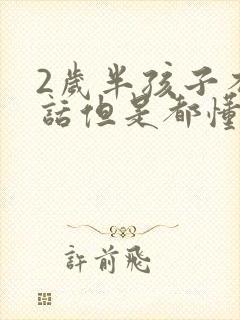 2歲半孩子
話但是都懂
許前飛